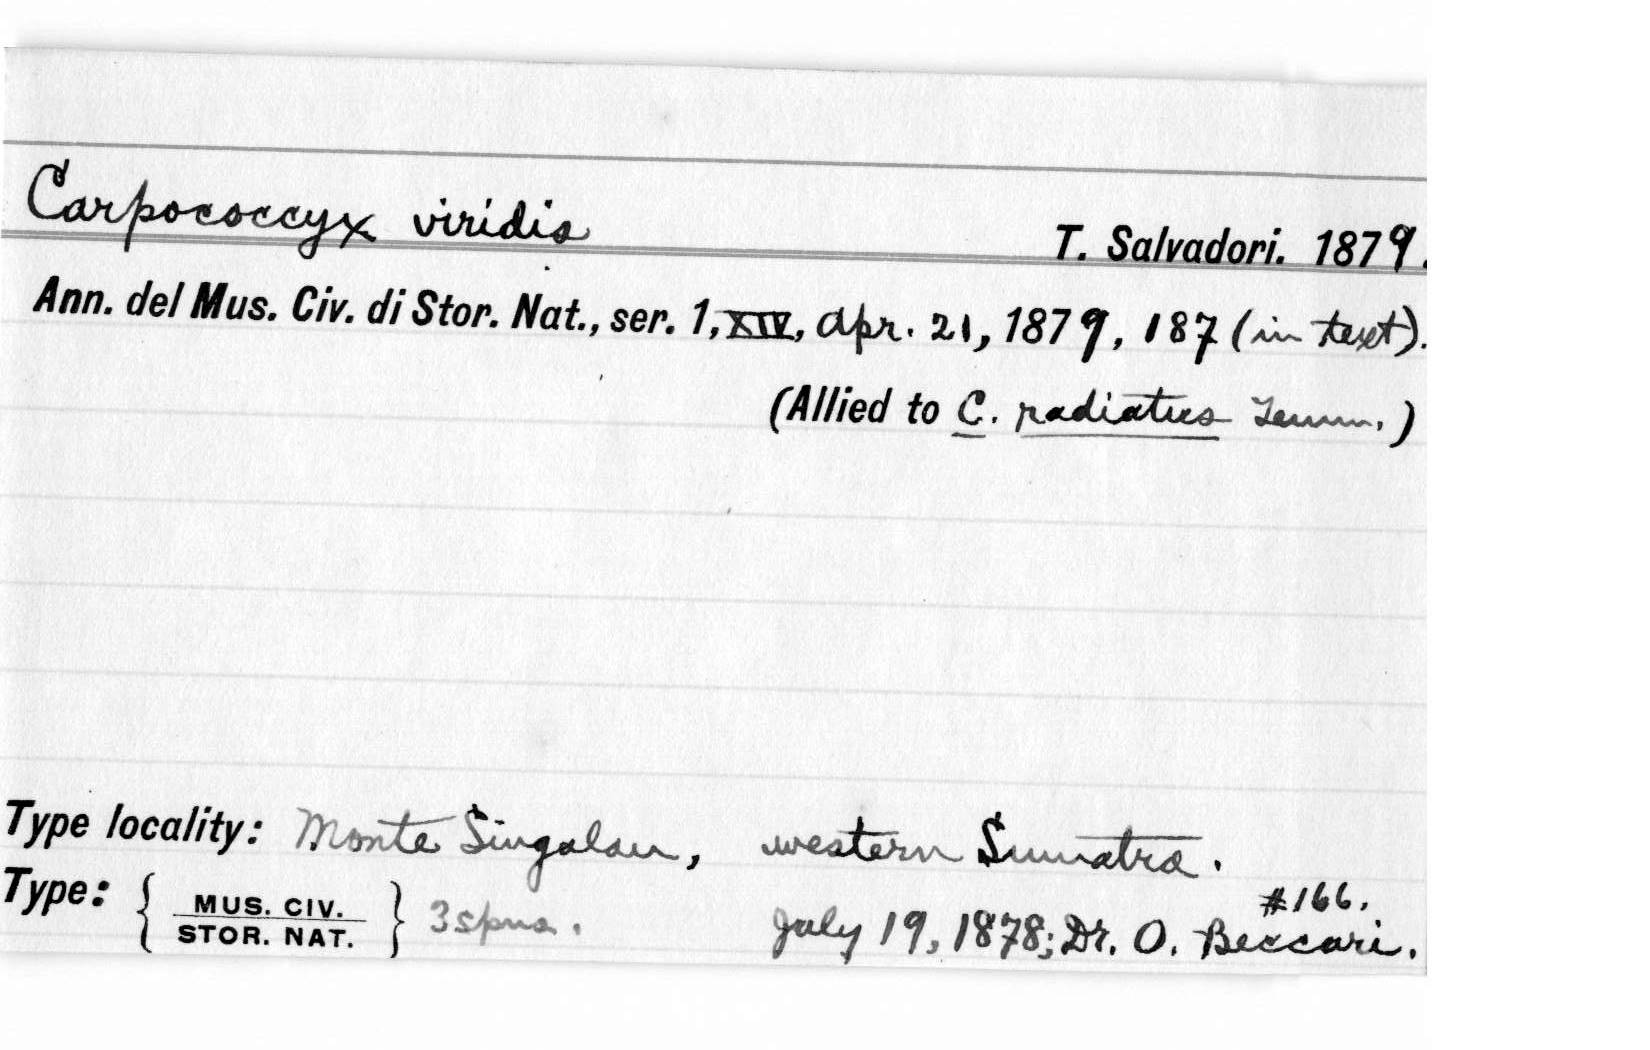 Carpococcyx viridis
T. Salvadori. 1879.
Ann. del Mus. Civ. di Stor. Nat., ser. 1, XIV, Apr. 21, 1879, 187 (in text).
(Allied to C. radiatus Temm.)
Type locality: Monte Singalan, western Sumatra.
#166.
Type: { MUS. CIV. STOR. NAT. } 3 spns. July 19, 1878; Dr. O. Beccari.